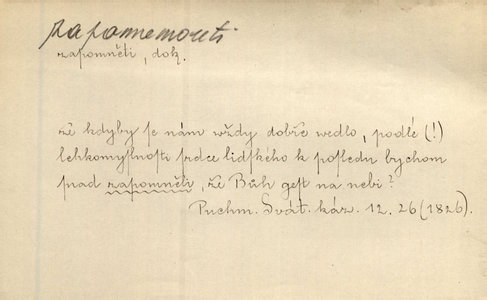 zapomenouti
zapomněti, dok.
že kdyby se nám wždy dobře wedlo, podlé (!)
lehkomyslnosti srdce lidského k posledu bychom
snad zapomněli, že Bůh gest na nebi?
Puchm. Svát. káz. 12. 26 (1826).